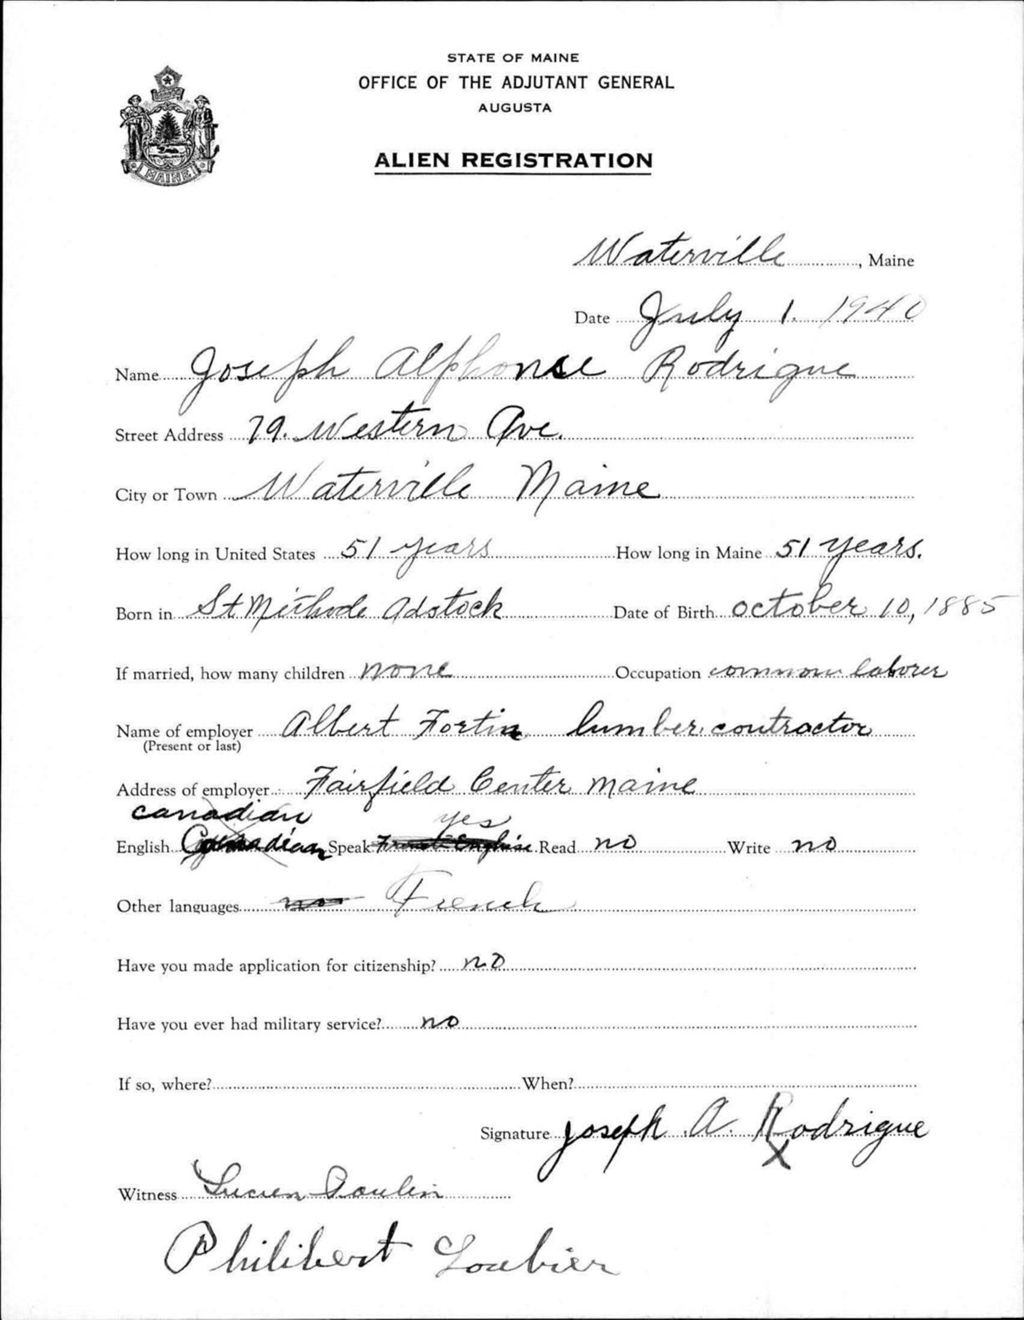 STATE OF MAINE
OFFICE OF THE ADJUTANT GENERAL
AUGUSTA
ALIEN REGISTRATION
MAINE
Waterville, Maine
Date July 1. 1940
Name Joseph Alphonse Rodrigue
Street Address 79. Western Ave.
City or Town Waterville Maine
How long in United States 51 years How long in Maine 51 years.
Born in St Methode Adstock Date of Birth October 10, 1885
If married, how many children none Occupation common laborer
Name of employer Albert Fortin lumber contractor
(Present or last)
Address of employer Fairfield Center Maine
canadian yes
English Canadian Speak French Englise Read no Write no
Other languages no French
Have you made application for citizenship? no
Have you ever had military service? no
If so, where? When?
Signature Joseph A. Rodrigue
X
Witness Lucien Poulin
Philibert Loubier